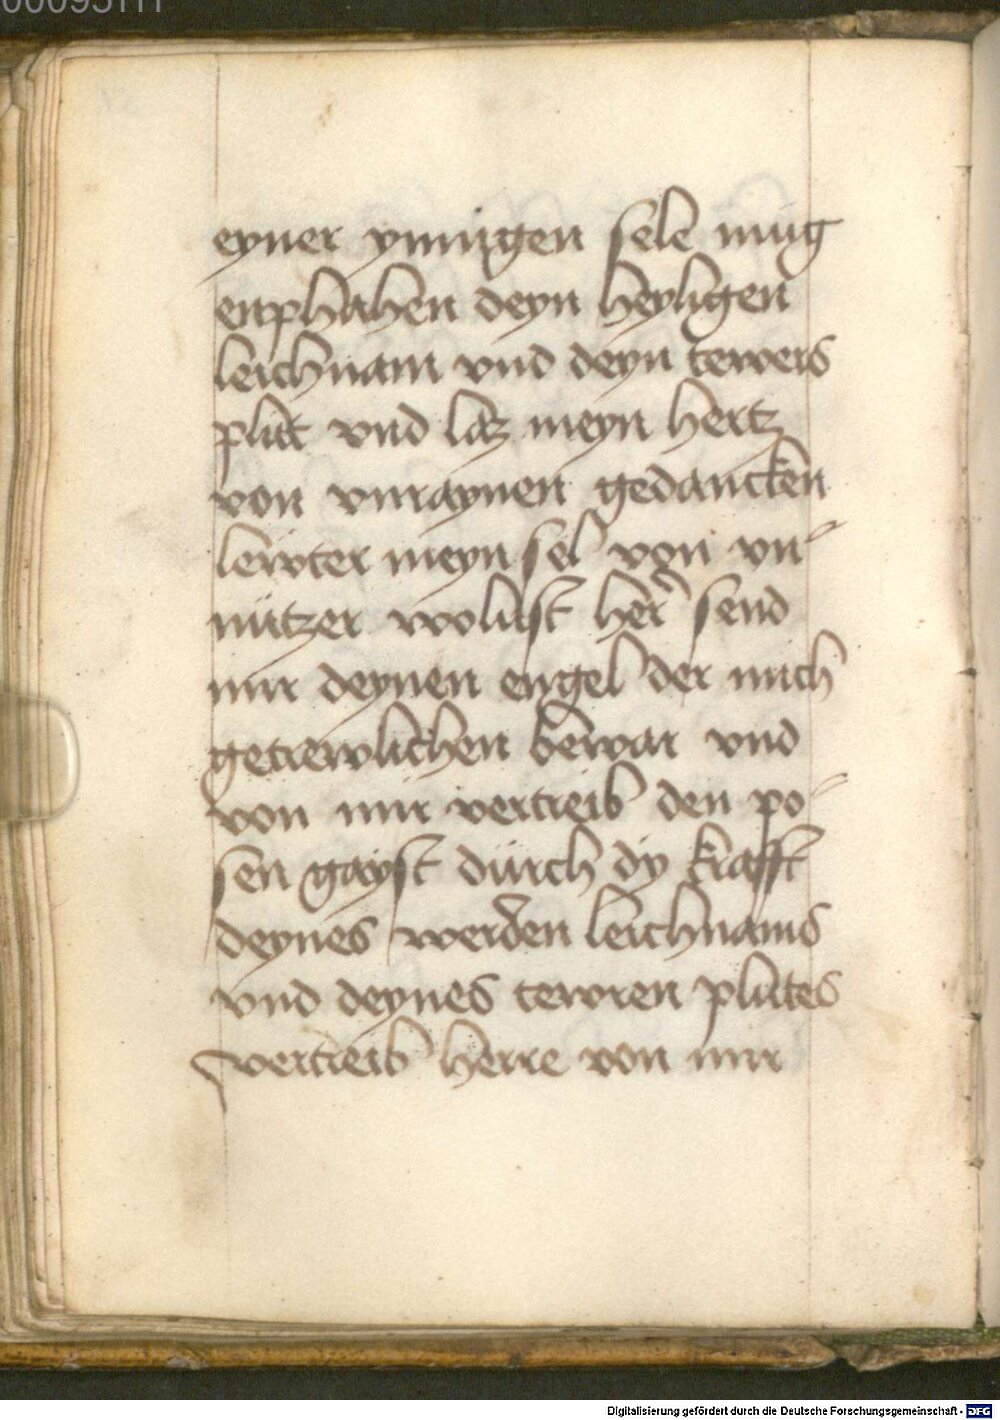 eyner ynnigen sele mug
enphahen deyn heyligen
leichnam vnd deyn tewers
plut vnd laz meyn hertz
von vnraynen gedancken
lewter meyn sel von vn-
nutzer wolust her send
mir deynen engel der mich
getrewlichen bewar vnd
von mir vertreib den po-
sen gayst durch dy krafft
deynes werden leichnams
vnd deynes tewren plutes
vertreib herre von mir
Digitalisierung gefördert durch die Deutsche Forschungsgemeinschaft - DFG